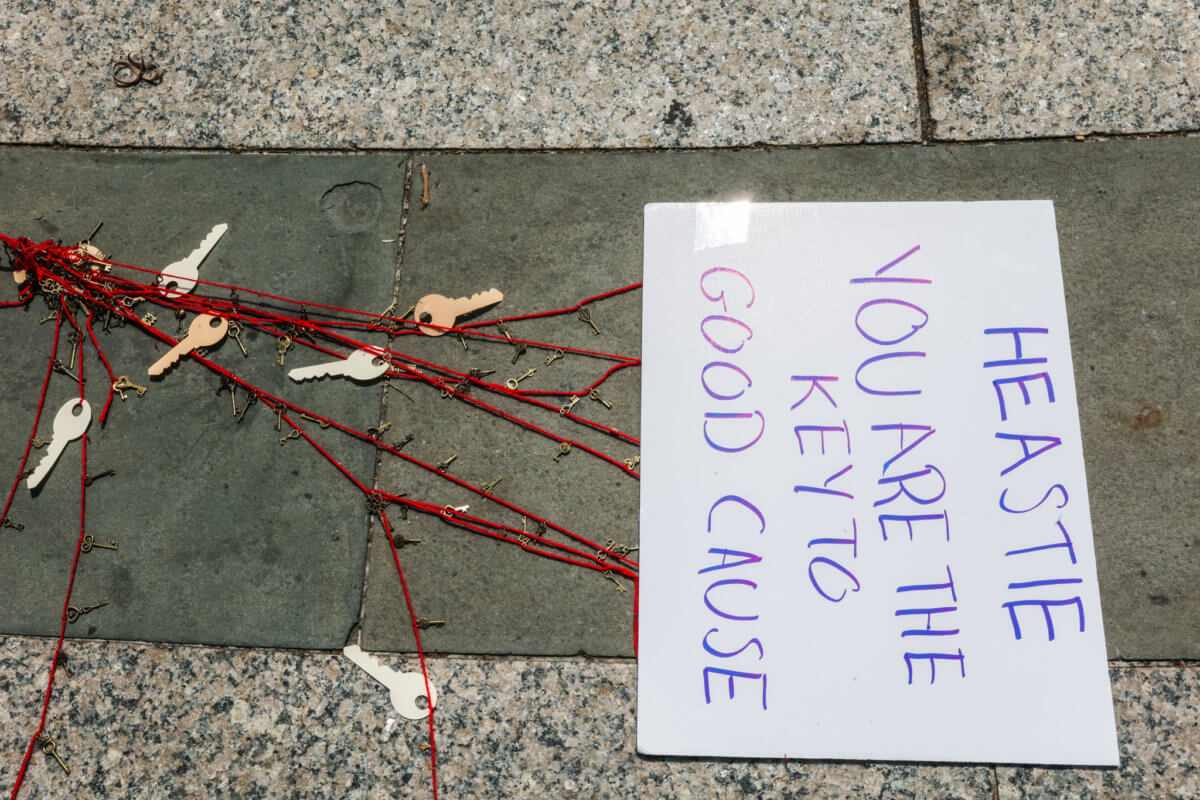 HEASTIE
YOU ARE THE
KEY TO
GOOD CAUSE